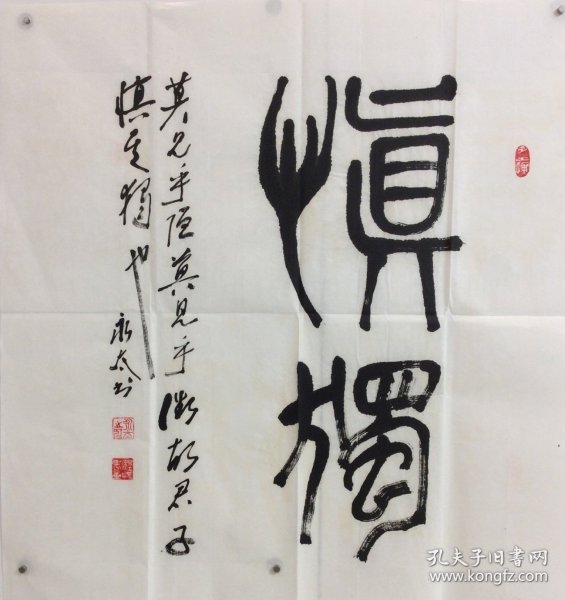 慎獨
莫見乎隱莫見乎微故君子
慎其獨也
永太书
孔夫子旧书网
www.kongfz.com